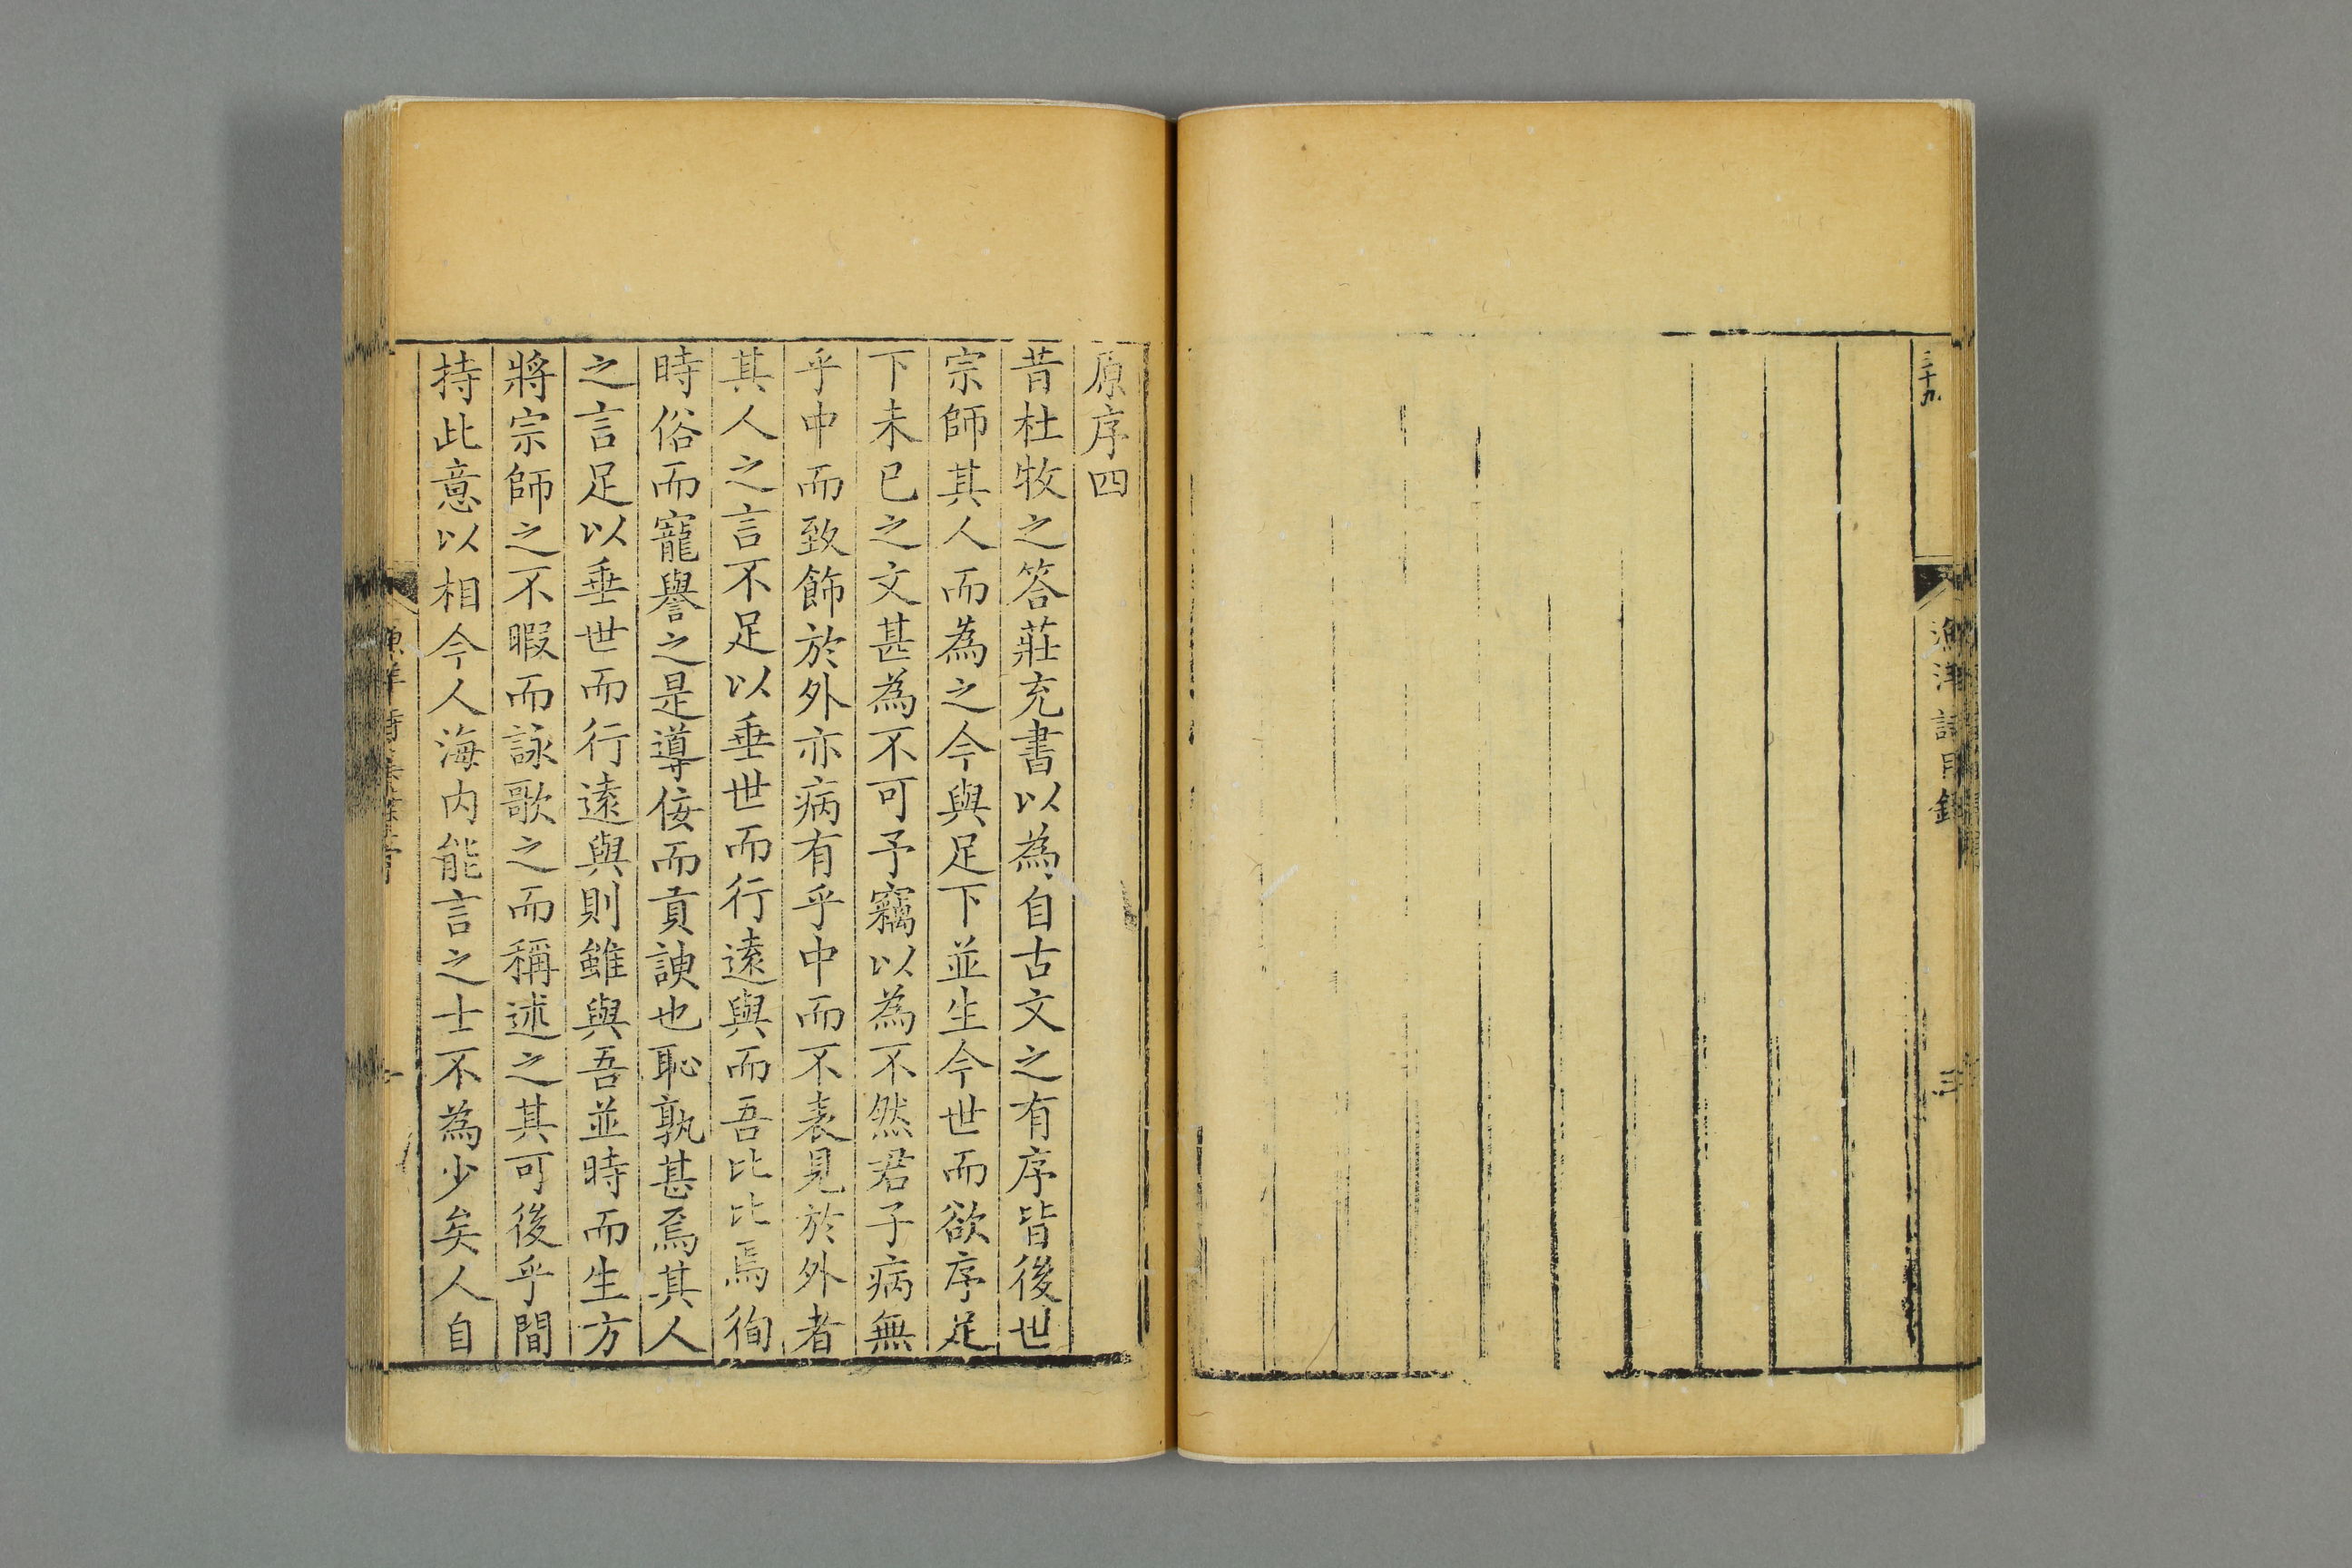 三十九
漁洋詩目錄
三
原序四
昔杜牧之答莊充書以為自古文之有序皆後世
宗師其人而為之今與足下並生今世而欲序足
下未已之文甚為不可予竊以為不然君子病無
乎中而致飾於外亦病有乎中而不表見於外者
其人之言不足以垂世而行遠與而吾比比焉徇
時俗而寵譽之是導佞而貢諛也恥孰甚焉其人
之言足以垂世而行遠與則雖與吾並時而生方
將宗師之不暇而詠歌之而稱述之其可後乎間
持此意以相今人海内能言之士不為少矣人自